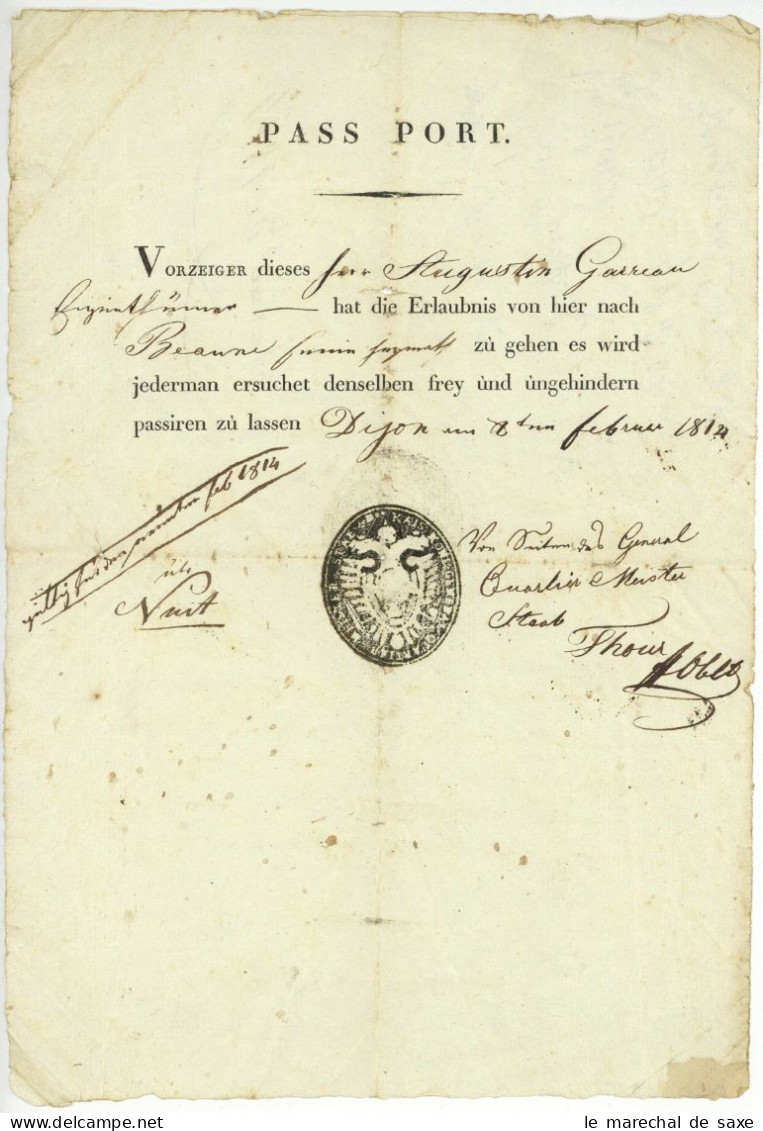 PASS PORT.
VORZEIGER dieses Herr Augustin Garreau
Eigenthümer — hat die Erlaubnis von hier nach
Beaune zù gehen es wird
jederman ersuchet denselben frey ùnd ùngehindern
passiren zù lassen Dijon am 8ten februar 1814
gültig für den neunten feb 1814
üb
Nuit
Von Seiten des General
Quartier Meister
Staab
Thour
Oblt
le marechal de saxe